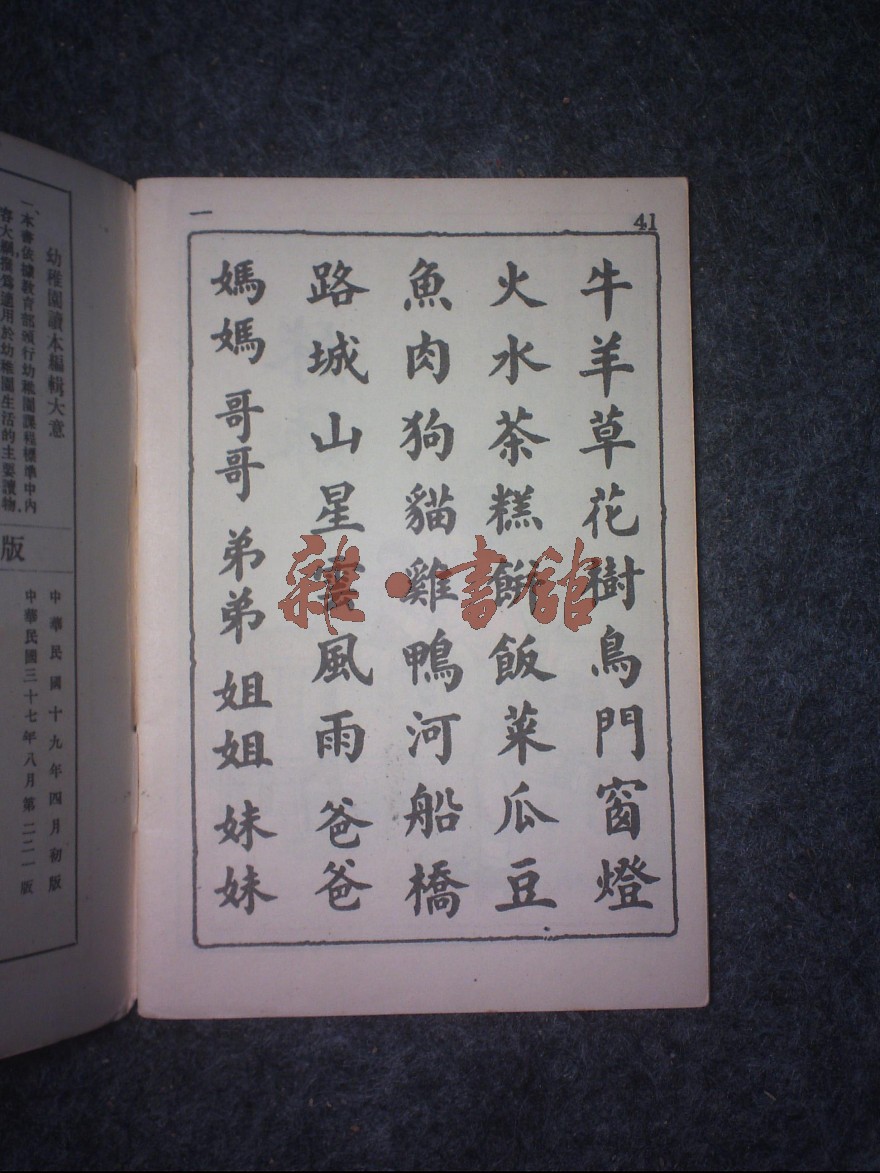 41
牛羊草花樹鳥門窗燈
火水茶糕餅飯菜瓜豆
魚肉狗貓雞鴨河船橋
路城山星雲風雨爸爸
媽媽哥哥弟弟姐姐妹妹
一
雜·書館
幼稚園讀本編輯大意
一、本書依據教育部頒行幼稚園課程標準中內
容大綱撰寫適用於幼稚園生活的主要讀物、
版
中華民國十九年四月初版
中華民國三十七年八月第二二一版